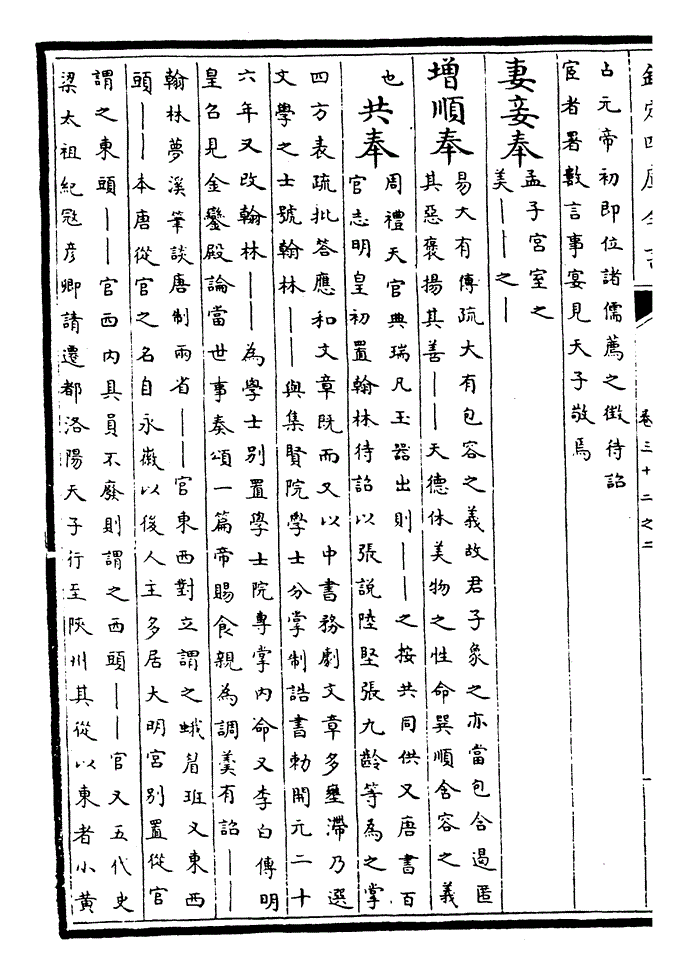 欽定四庫全書
卷三十二之二
占元帝初即位諸儒薦之徵待詔
宦者署數言事宴見天子敬焉
妻妾奉 孟子宮室之
美——之—
增順奉 易大有傳疏大有包容之義故君子象之亦當包含遏匿
其惡褒揚其善——天德休美物之性命巽順含容之義
也 共奉 周禮天官典瑞凡玉器出則——之按共同供又唐書百
官志明皇初置翰林待詔以張說陸堅張九齡等為之掌
四方表疏批答應和文章既而又以中書務劇文章多壅滯乃選
文學之士號翰林——與集賢院學士分掌制誥書勅開元二十
六年又改翰林——為學士別置學士院專掌內命又李白傳明
皇召見金鑾殿論當世事奏頌一篇帝賜食親為調羹有詔——
翰林夢溪筆談唐制兩省——官東西對立謂之蛾眉班又東西
頭——本唐從官之名自永徽以後人主多居大明宮別置從官
謂之東頭——官西內具員不廢則謂之西頭——官又五代史
梁太祖紀寇彥卿請遷都洛陽天子行至陝州其從以東者小黃